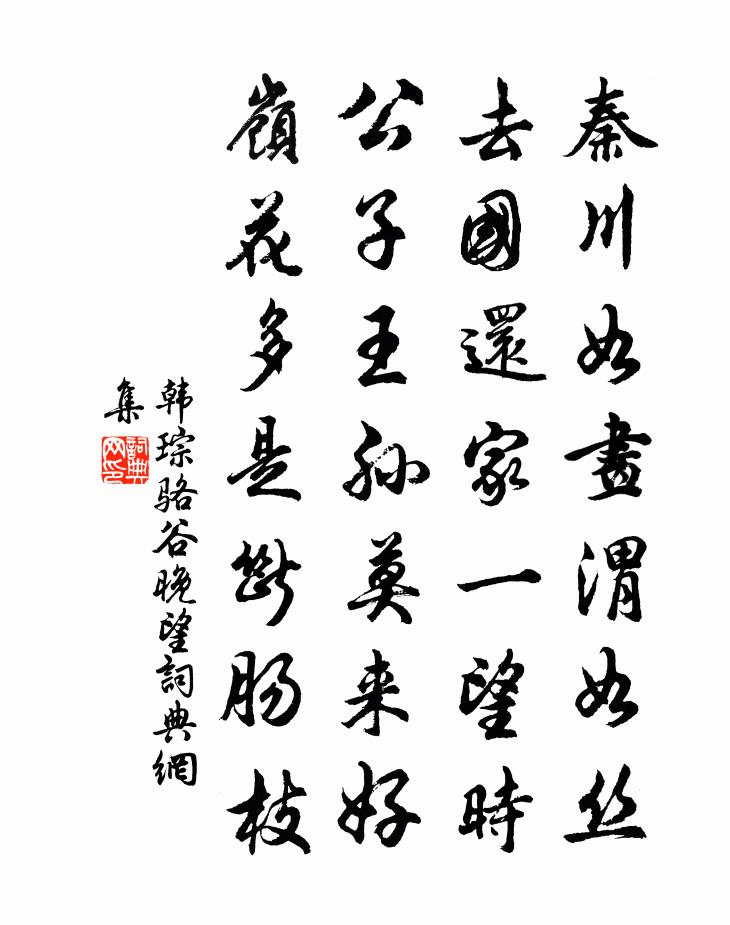 秦川如畫渭如丝
去國還家一望時
公子王孙莫来好
嶺花多是斷肠枝
韩琮骆谷晚望詞典網
集
詞典网印